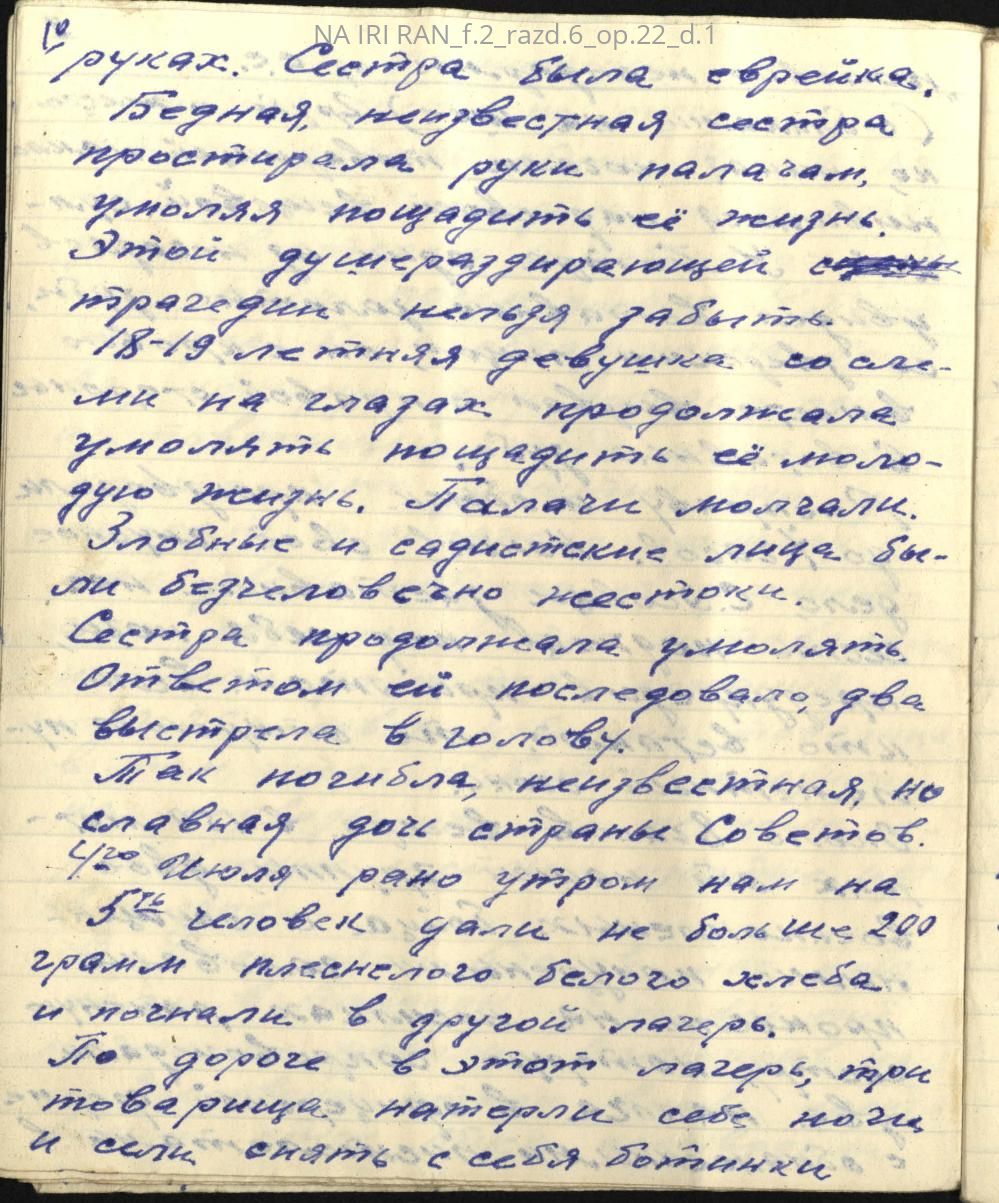 NA IRI RAN_f.2_razd.6_op.22_d.1
руках. Сестра была еврейка.
Бедная, неизвестная сестра
простирала руки палачам,
умоляя пощадить её жизнь.
Этой душераздирающей
трагедии нельзя забыть.
18-19 летняя девушка со сле-
ми на глазах продолжала
умолять пощадить её моло-
дую жизнь. Палачи молчали.
Злобные и садистские лица бы-
ли безчеловечно жестоки.
Сестра продолжала умолять.
Ответом ей последовало, два
выстрела в голову.
Так погибла, неизвестная, но
славная дочь страны Советов.
4го Июля рано утром нам на
5ть человек дали не больше 200
грамм плеснелого белого хлеба
и погнали в другой лагерь.
По дороге в этот лагерь, три
товарища натерли себе ноги
и сели снять с себя ботинки